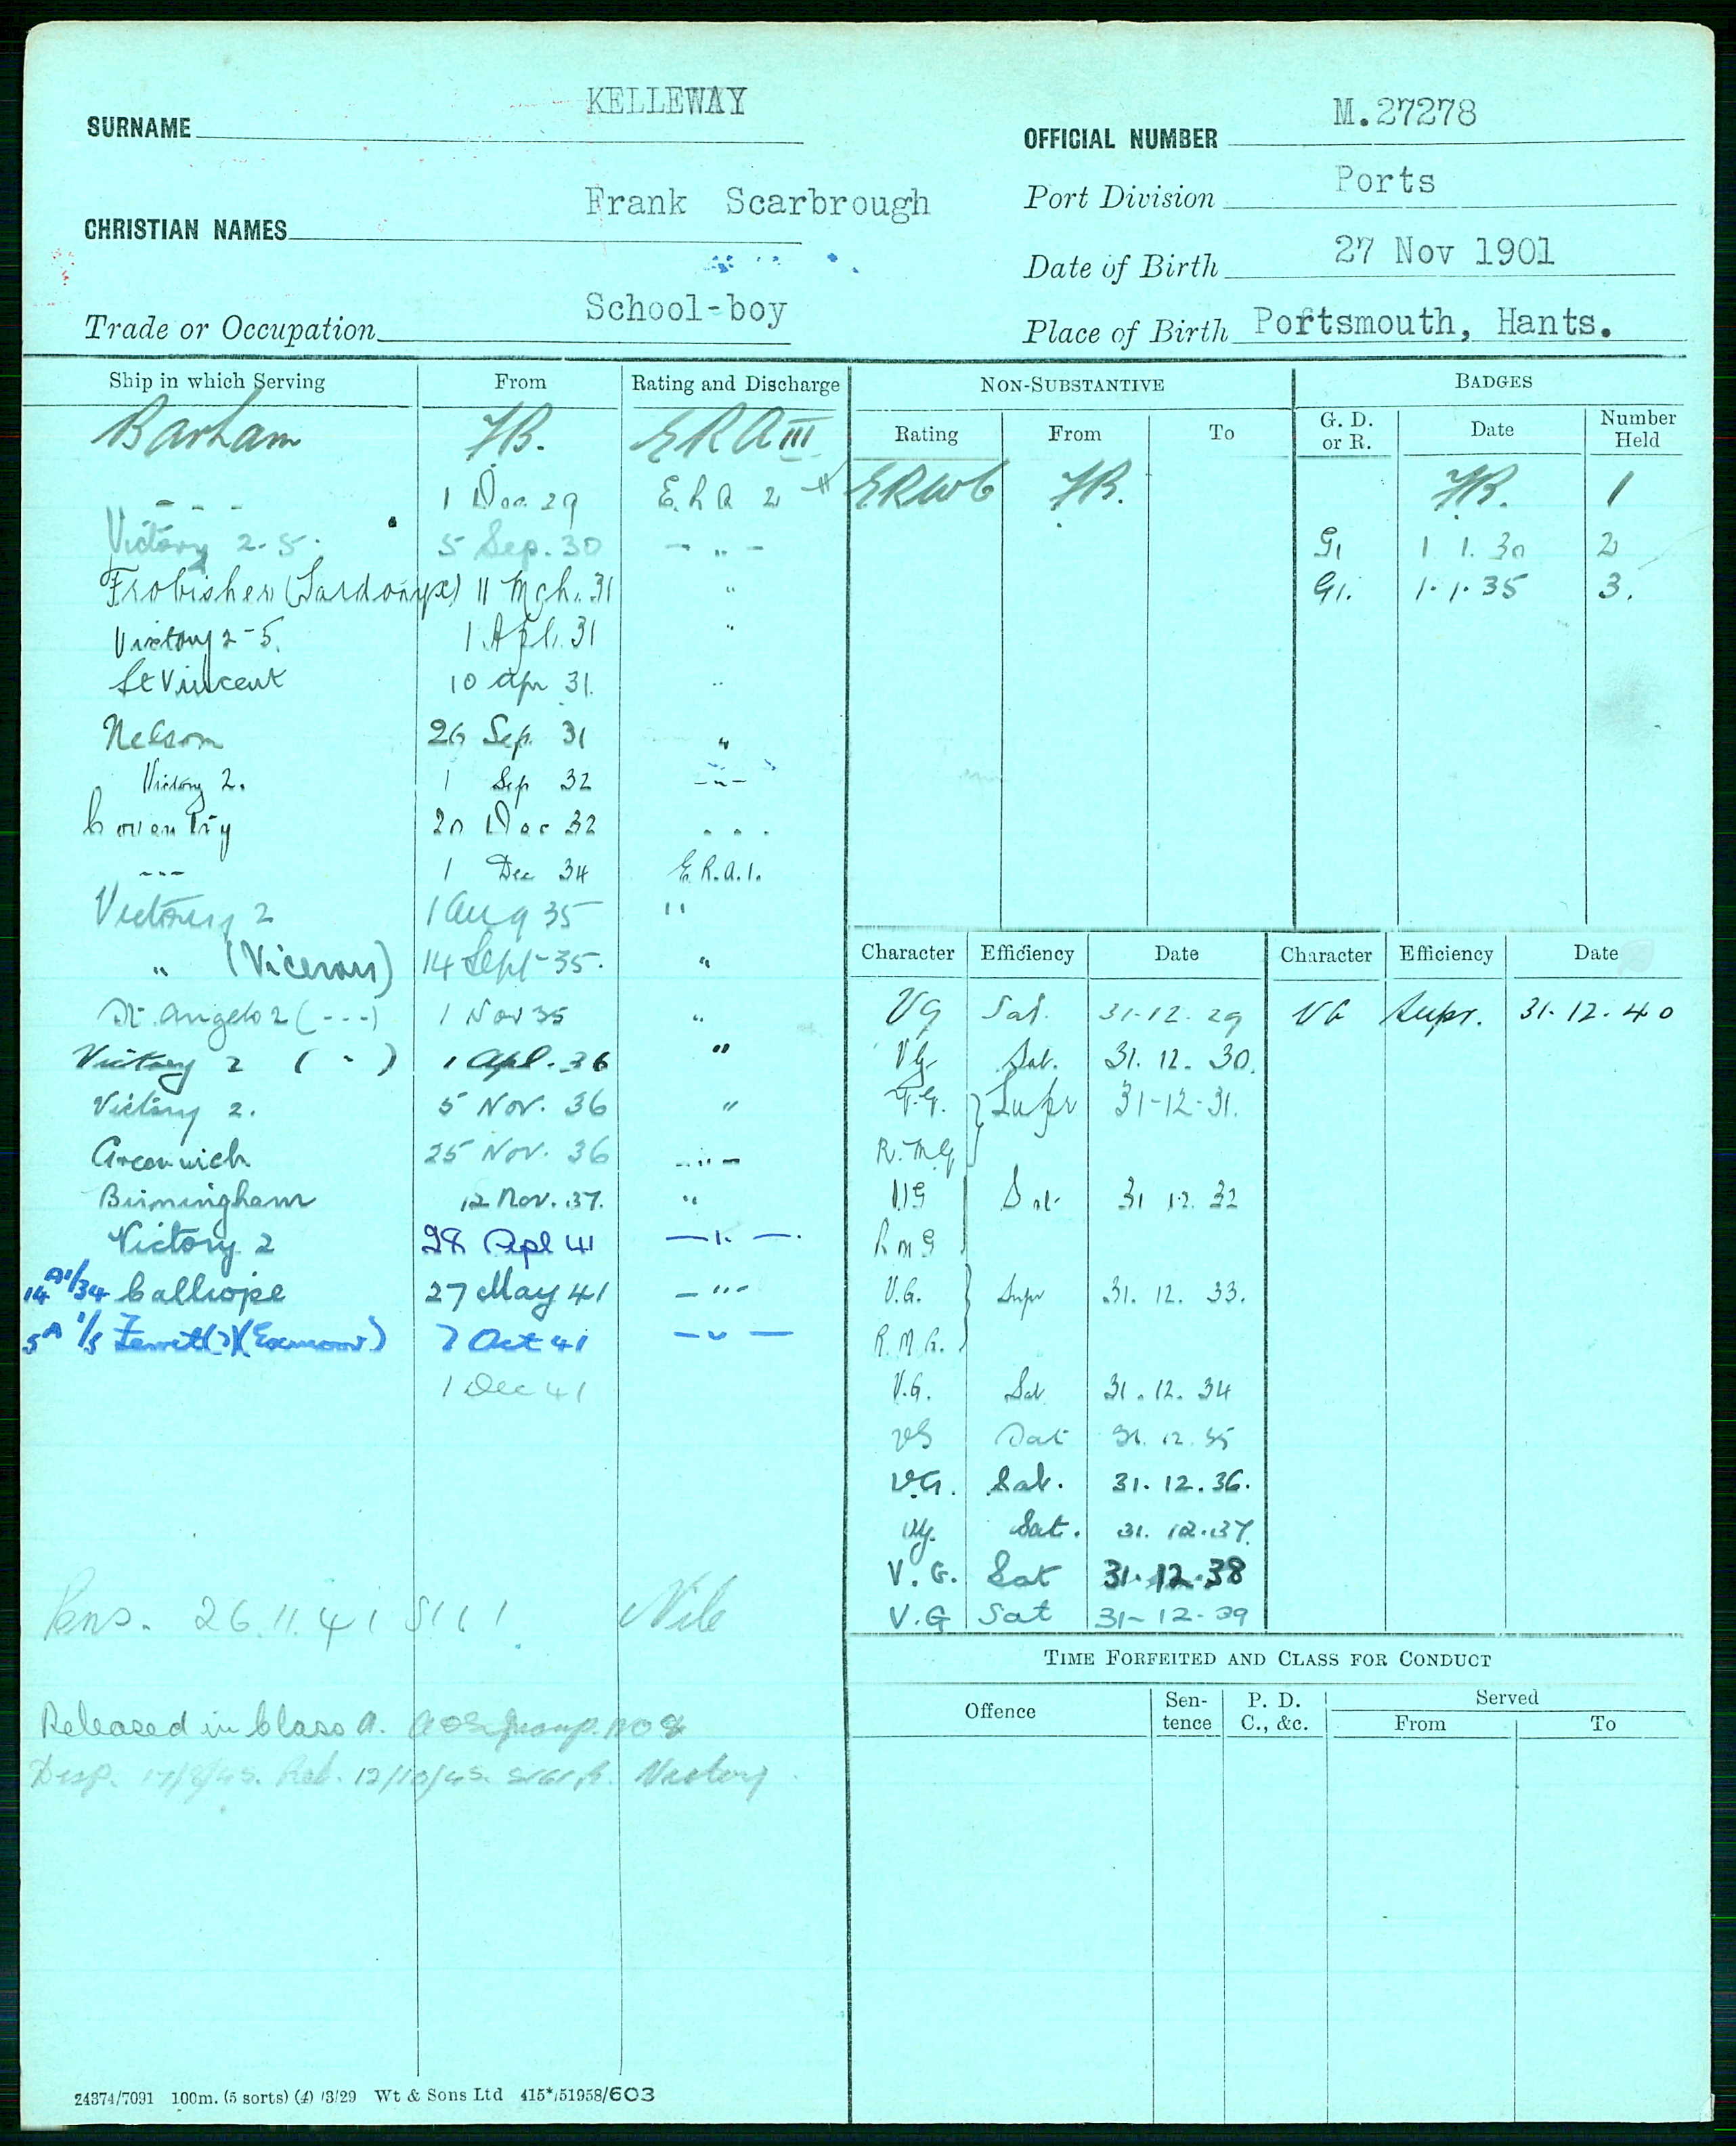 SURNAME KELLEWAY
OFFICIAL NUMBER M.27278
CHRISTIAN NAMES Frank Scarbrough
Port Division Ports
Date of Birth 27 Nov 1901
Trade or Occupation School-boy
Place of Birth Portsmouth, Hants.
Ship in which Serving From Rating and Discharge
Barham FB. ERA III
- - - 1 Dec 29 E.R.A 2
Victory 2-5. 5 Sep. 30 - " -
Frobisher (Sardonyx) 11 Mch. 31 "
Victory 2-5. 1 Apl. 31 "
St Vincent 10 Apr 31. "
Nelson 26 Sep 31 "
Victory 2. 1 Sep 32 - " -
Coventry 20 Dec 32 . . .
- - - 1 Dec 34 E.R.A.1.
Victory 2 1 Aug 35 "
" (Viceroy) 14 Sept 35. "
St. Angelo 2 (- - -) 1 Nov 35 "
Victory 2 ( " ) 1 Apl. 36 "
Victory 2. 5 Nov. 36 "
Greenwich 25 Nov. 36 - " -
Birmingham 12 Nov. 37. "
Victory 2 28 Apl 41 - " -
14 A1/34 Calliope 27 May 41 - " -
5A 1/5 Ferret (Exmoor) 7 Oct 41 - " -
1 Dec 41
Pens. 26.11.41 Nile
Released in Class A. A & S group. No 8
Disp. Rel. 12/10/45. Victory
24374/7091 100m. (5 sorts) (4) /3/29 Wt & Sons Ltd 415*/51958/603
NON-SUBSTANTIVE
Rating From To
FB.
BADGES
G. D. or R. Date Number Held
FB. 1
G. 1 1. 30 2
G. 1.1.35 3.
Character Efficiency Date Character Efficiency Date
VG Sat. 31-12-29 VG Supr. 31.12.40
VG Sat. 31. 12. 30.
V.G. } Supr 31-12-31.
R.M.G
VG } Sat 31 12. 32
R M G
V.G. } Supr 31. 12. 33.
R. M. G.
V.G. Sat 31. 12. 34
VG Sat 31. 12. 35
V.G. Sat. 31. 12. 36.
VG. Sat. 31. 12. 37.
V. G. Sat 31. 12. 38
V.G Sat 31-12-39
TIME FORFEITED AND CLASS FOR CONDUCT
Offence Sentence P. D. C., &c. Served
From To